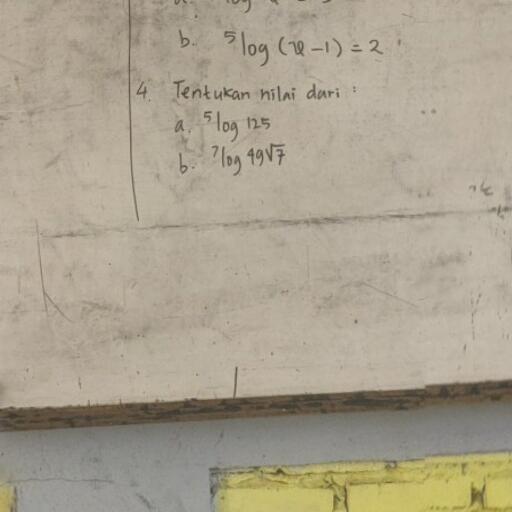 b. ⁵log (x-1) = 2
4. Tentukan nilai dari :
a. ⁵log 125
b. ⁷log 49√7